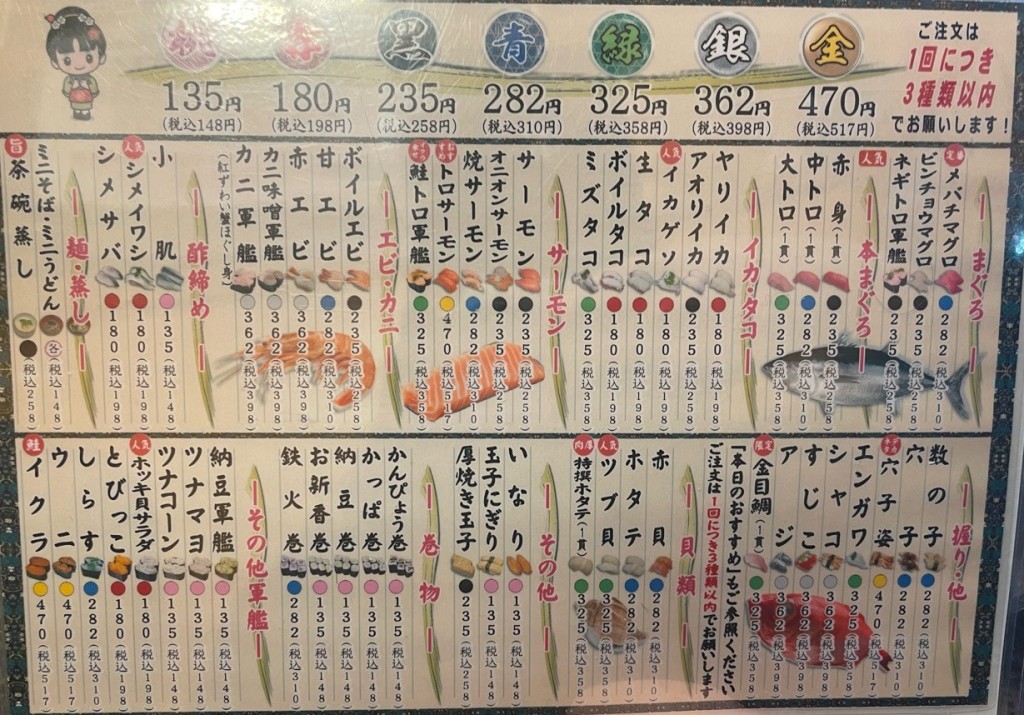 桃 赤 黒 青 緑 銀 金
135円 180円 235円 282円 325円 362円 470円
(税込148円) (税込198円) (税込258円) (税込310円) (税込358円) (税込398円) (税込517円)
ご注文は
1回につき
3種類以内
でお願いします!
まぐろ
定番 メバチマグロ 282(税込310)
ビンチョウマグロ 235(税込258)
ネギトロ軍艦 235(税込258)
本まぐろ
人気
赤身(一貫) 235(税込258)
中トロ(一貫) 282(税込310)
大トロ(一貫) 325(税込358)
イカ・タコ
ヤリイカ 180(税込198)
アオリイカ 235(税込258)
人気 イカゲソ 180(税込198)
生タコ 180(税込198)
ボイルタコ 180(税込198)
ミズタコ 325(税込358)
サーモン
サーモン 235(税込258)
オニオンサーモン 235(税込258)
焼サーモン 282(税込310)
おすすめ トロサーモン 470(税込517)
鮭トロ軍艦 325(税込358)
エビ・カニ
ボイルエビ 235(税込258)
甘エビ 282(税込310)
赤エビ 362(税込398)
カニ味噌軍艦 362(税込398)
カニ軍艦 362(税込398)
(紅ずわい蟹ほぐし身)
酢締め
小肌 135(税込148)
人気 シメイワシ 180(税込198)
シメサバ 180(税込198)
麺・蒸し
ミニそば・ミニうどん 各148
旨 茶碗蒸し (税込258)
握り・他
数の子 282(税込310)
穴子 282(税込310)
穴子姿 470(税込517)
エンガワ 325(税込358)
シャコ 362(税込398)
すじこ 362(税込398)
アジ 362(税込398)
限定 金目鯛(一貫) 325(税込358)
「本日のおすすめ」もご参照ください
ご注文は1回につき3種類以内でお願いします
貝類
赤貝 282(税込310)
ホタテ 282(税込310)
人気 ツブ貝 325(税込358)
肉厚 特撰ホタテ(一貫) 325(税込358)
その他
いなり 135(税込148)
玉子にぎり 135(税込148)
厚焼き玉子 235(税込258)
巻物
かんぴょう巻 135(税込148)
かっぱ巻 135(税込148)
納豆巻 135(税込148)
お新香巻 135(税込148)
鉄火巻 282(税込310)
その他軍艦
納豆軍艦 135(税込148)
ツナマヨ 135(税込148)
ツナコーン 135(税込148)
人気 ホッキ貝サラダ 180(税込198)
とびっこ 180(税込198)
しらす 282(税込310)
ウニ 470(税込517)
鮭 イクラ 470(税込517)